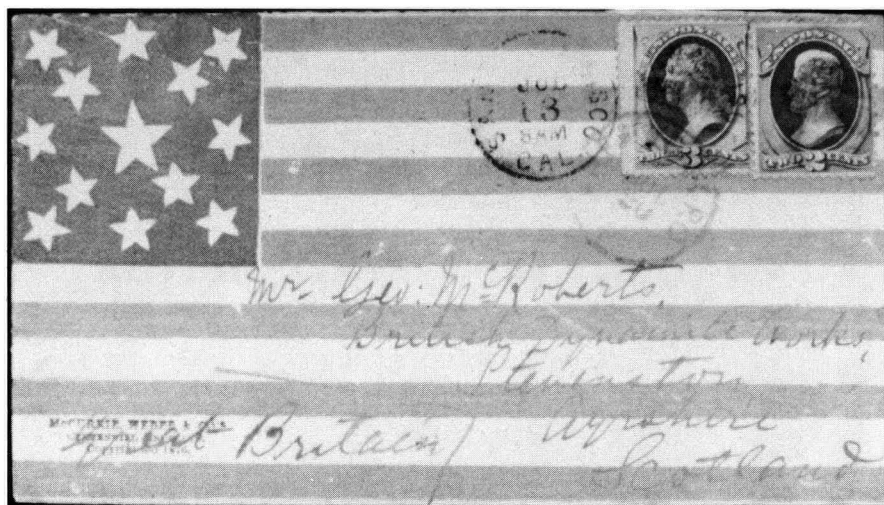 SAN
JUL
13
8AM
CAL.
3
AND 2 CENTS
Mr. Geo: McRoberts,
British Dynamite Works,
Stevenston
Ayrshire
Scotland
Great Britain